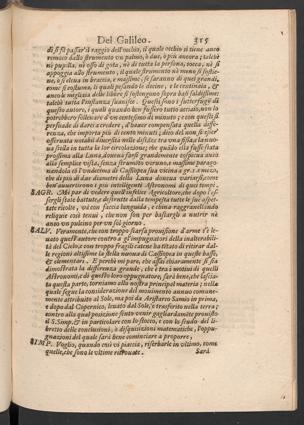 Del Galileo. 315
di si fà passar'il raggio dell'occhio, il quale occhio si tiene anco
remoto dallo strumento vn palmo, ò due, ò più ancora; talchè
nè pupilla, nè osso di gota, nè di tutta la persona, tocca, nè si
appoggia allo strumento, il quale strumento nè meno si sostie-
ne, ò si eleua in braccia, e massime, se saranno di quei grandi,
come si costuma, li quali pesando le decine, e le centinaia, &
anco le migliaia delle libbre si sostengono sopra basi saldissime:
talchè tutta l'instanza suanisce. Questi sono i sutterfugij di
questo autore, i quali quando ben fussero tutti saldi, non lo
potrebbero sollevare d'vn centesimo di minuto; e con questi si
persuade di darci a credere, d'hauer compensata quella diffe-
renza, che importa più di cento minuti; dico del non si esser'
osseruata notabil diuersità nelle distanze tra vna fissa, e la nuo-
ua stella in tutta la lor circolazione; che quando ella fusse stata
prossima alla Luna, doueua farsi grandemente cospicua anco
alla semplice vista, senza strumento veruno, e massime parago-
nandola con l'vndecima di Cassiopea sua vicina a gr. 1. m. 30.
che di più di due diametri della Luna doueua variarsi, come
ben'auuertirono i più intelligenti Astronomi di quei tempi.
SAGR. Mi par di vedere quell'infelice Agricoltore, che dopo l'es-
sergli state battute, e destrutte dalla tempesta tutte le sue aspet-
tate ricolte, và con faccia languida, e china raggranellando
reliquie così tenui, che non son per bastargli a nutrir nè
anco vn pulcino per vn sol giorno.
SALV. Veramente, che con troppo scarsa prouisione d'arme s'è le-
uato quest'autore contro a gl'impugnatori della inalterabilità
del Cielo, e con troppo fragili catene ha tentato di ritirar dal-
le regioni altissime la stella nuoua di Cassiopea in queste basse,
& elementari. E perchè mi pare, che assai chiaramente si sia
dimostrata la differenza grande, che è tra i motiui di quelli
Astronomi, e di questo loro oppugnatore, sarà bene, che lascia-
ta questa parte, torniamo alla nostra principal materia; nella
quale segue la considerazione del mouimento annuo comune-
mente attribuito al Sole, ma poi da Aristarco Samio in prima,
e dopo dal Copernico, leuato dal Sole, e trasferito nella terra;
contro alla qual posizione sento venir gagliardamente prouisto
il S. Simp. & in particolare con lo stocco, e con lo scudo del li-
bretto delle conclusioni, ò disquisizioni matematiche, l'oppu-
gnazioni del quale sarà bene cominciare a proporre.
SIMP. Voglio, quando così vi piaccia, riserbarle in vltimo, come
quelle, che sono le vltime ritrouate.
Sarà